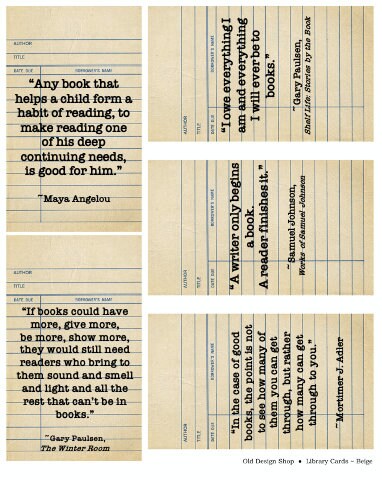 AUTHOR
TITLE
DATE DUE BORROWER'S NAME
“Any book that
helps a child form a
habit of reading, to
make reading one
of his deep
continuing needs,
is good for him.”
~Maya Angelou
AUTHOR
TITLE
DATE DUE BORROWER'S NAME
“If books could have
more, give more,
be more, show more,
they would still need
readers who bring to
them sound and smell
and light and all the
rest that can't be in
books.”
~Gary Paulsen,
The Winter Room
AUTHOR
TITLE
DATE DUE BORROWER'S NAME
“I owe everything I
am and everything
I will ever be to
books.”
~Gary Paulsen,
Shelf Life: Stories by the Book
AUTHOR
TITLE
DATE DUE BORROWER'S NAME
“A writer only begins
a book.
A reader finishes it.”
~Samuel Johnson,
Works of Samuel Johnson
AUTHOR
TITLE
DATE DUE BORROWER'S NAME
“In the case of good
books, the point is not
to see how many of
them you can get
through, but rather
how many can get
through to you.”
~Mortimer J. Adler
Old Design Shop • Library Cards ~ Beige